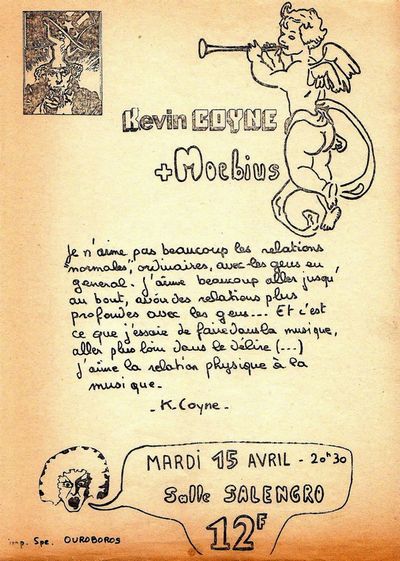 Kevin COYNE
+ Moebius
Je n'aime pas beaucoup les relations
"normales", ordinaires, avec les gens en
general. J'aime beaucoup aller jusqu'
au bout, avoir des relations plus
profondes avec les gens... Et c'est
ce que j'essaie de faire dans la musique,
aller plus loin dans le délire (...)
J'aime la relation physique à la
musique.
- K.Coyne -
MARDI 15 AVRIL - 20H30
Salle SALENGRO
12F
imp. Spe. OUROBOROS